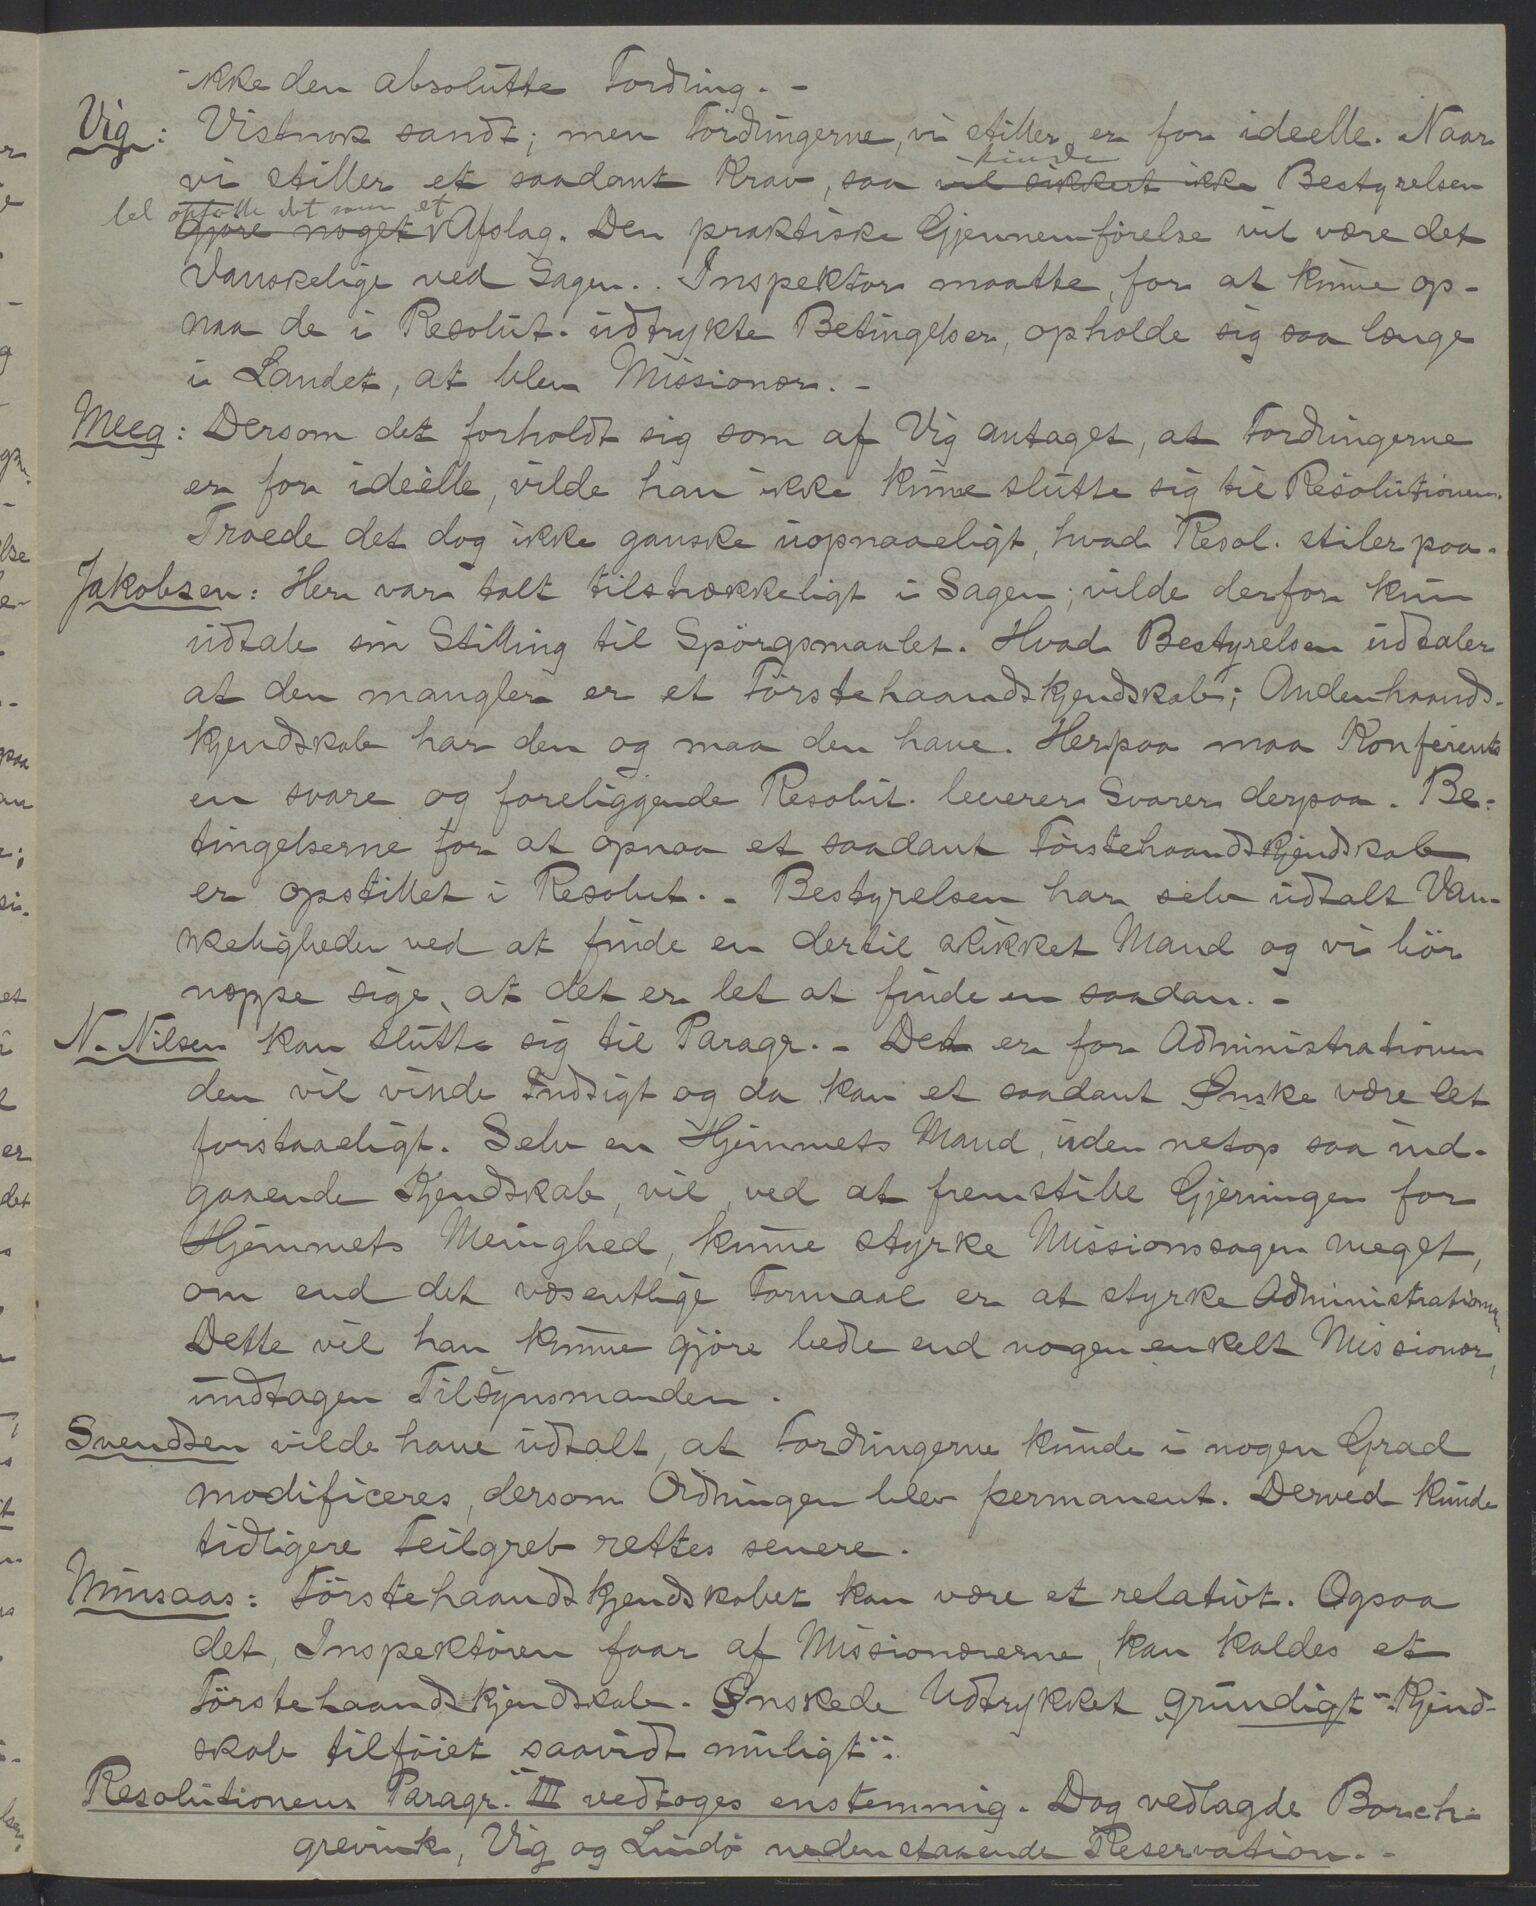 ikke den absolutte Fordring. -
Vig: Vistnok sandt; men Fordringerne, vi stiller, er for ideelle. Naar
vi stiller et saadant Krav, saa vil sikkert ikke kunde Bestyrelsen
let opfatte det som et gjøre noget Afslag. Den praktiske Gjennemførelse vil være det
Vanskelige ved Sagen. . Inspektør maatte, for at kunne op-
naa de i Resolut. udtrykte Betingelser, opholde sig saa længe
i Landet, at blev Missionær. -
Meeg: Dersom det forholdt sig som af Vig antaget, at Fordringerne
er for ideelle, vilde han ikke kunne slutte sig til Resolutionen.
Troede det dog ikke ganske uopnaaeligt, hvad Resol. stiler paa.
Jakobsen: Her var talt tilstrækkeligt i Sagen; vilde derfor kun
udtale sin Stilling til Spörgsmaalet. Hvad Bestyrelsen udtaler
at den mangler er et Förstehaandskjendskab; Andenhaands-
kjendskab har den og maa den have. Herpaa maa Konferents
en svare og foreliggende Resolut. leverer Svaret derpaa. Be-
tingelserne for at opnaa et saadant Förstehaandskjendskab
er opstillet i Resolut. - Bestyrelsen har selv udtalt Van-
skeligheden ved at finde en dertil skikket Mand og vi bör
neppe sige, at det er let at finde en saadan. -
N. Nilsen kan slutte sig til Paragr. - Det er for Administrationen
den vil vinde Indsigt og da kan et saadant Ønske være let
forstaaeligt. Selv en Hjemmets Mand, uden netop saa ind-
gaaende Kjendskab, vil, ved at fremstille Gjerningen for
Hjemmets Menighed, kunne styrke Missionssagen meget,
om end det væsentlige Formaal er at styrke Administrationen
Dette vil han kunne gjöre bedre end nogen enkelt Missionær,
undtagen Tilsynsmanden.
Svendsen vilde have udtalt, at Fordringerne kunde i nogen Grad
modificeres, dersom Ordningen blev permanent. Derved kunde
tidligere Feilgreb rettes senere.
Minsaas: Förstehaandskjendskabet kan være et relativt. Ogsaa
det, Inspektören faar af Missionærerne, kan kaldes et
Förstehaandskjendskab. Ønskede Udtrykket „grundigt" Kjend-
skab tilföiet „saavidt muligt".
Resolutionens Paragr. III vedtoges enstemmig. Dog vedlagde Borch-
grevink, Vig og Lindö nedenstaaende Reservation. -